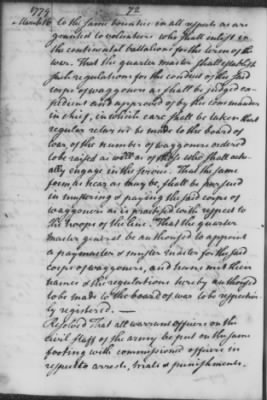 1779 72
March 16 to the same bounties in all respects as are
granted to volunteers who shall enlist in
the continental battalions for the term of the
war. That the quarter master shall establish
such regulations for the conduct of the said
corps of waggoners as shall be judged ex-
pedient and approved of by the commander
in chief, in which care shall be taken that
regular returns be made to the board of
war, of the number of waggoners ordered
to be raised as well as of those who shall actu-
ally engage in the service. That the same
form as near as may be, shall be pursued
in mustering & paying the said corps of
waggoners as is practised with respect to
the troops of the line. That the quarter
master general be authorised to appoint
a paymaster & muster master for the said
corps of waggoners, and transmit their
names & the regulations hereby authorised
to be made to the board of war to be respective-
ly registered. —
Resolved That all warrant officers on the
civil staff of the army be put on the same
footing with commissioned officers in
respect to arrests, trials & punishments.